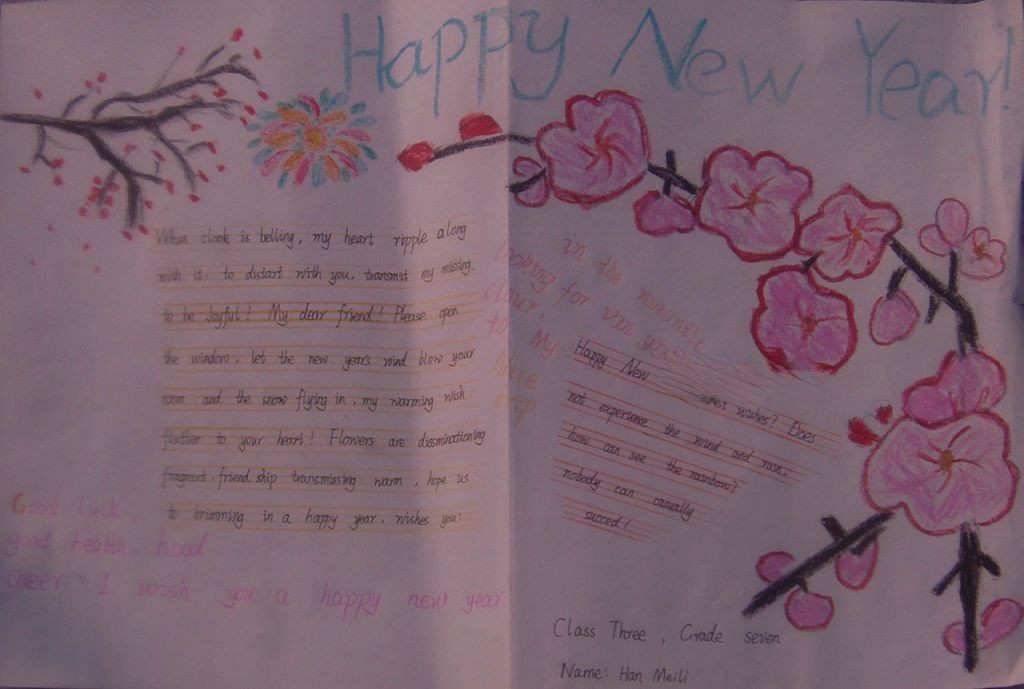 Happy New Year!
When clock is belling, my heart ripple along
with it, to distort with you, transmit my missing.
to be Joyful! My dear friend! Please open
the window, let the new years wind blow your
room and the snow flying in, my warming wish
flutter to your heart! Flowers are disseminationing
fragrant, friend ship transmissing warm, hope us
to brimming in a happy year, wishes you:
Good luck,
good health, hood
cheer. I wish you a happy new year
in the romantic
looking for
to My
Nice
trip
Happy New wishes? Does
not experience the wind and rain,
how can see the rainbow?
nobody can casually
succed!
Class Three, Grade seven
Name: Han Meili